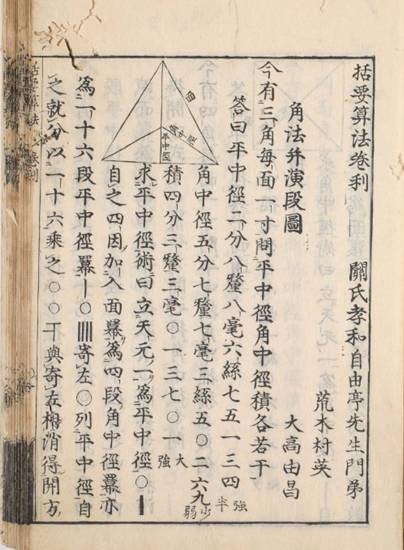 括要算法卷利
關氏孝和自由亭先生門弟
荒木村英
大高由昌
角法幷演段圖
今有三角每面一寸問平中徑角中徑積各若干
答曰平中徑二分八釐八毫六絲七五一三四半強
角中徑五分七釐七毫三絲五〇二六九少弱
積四分三釐三毫〇一三七〇一大強
求平中徑術曰立天元一爲平中徑〇|
自之四因加入面冪爲四段角中徑冪亦
爲一十六段平中徑冪|〇||||寄左〇列平中徑自
之就分以一十六乘之〇〇一丅與寄左相消得開方
面
角中徑
平中徑
括要算法 卷利